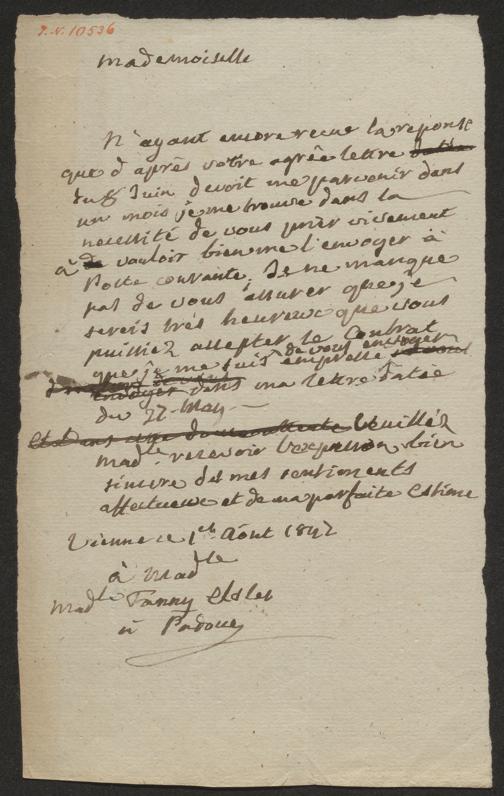 I.N. 10536
Mademoiselle
N'ayant encore recue la reponse
que d'après votre agrée lettre
du 8 Juin devoit me parvenir dans
un mois je me trouve dans la
necessité de vous prier vivement
à vouloir bien me l'envoyer à
Poste courante. Je ne manque
pas de vous assurer que je
serois très heureux que vous
puissiez accepter le Contrat
que je me suis empressé de vous envoyer
dans ma lettre datée
du 27 May
Veuilléz
Madlle recevoir l'expression bien
sincere de mes sentiments
affectueux et de ma parfaite estime
Vienne le 1er Août 1842
à Madlle
Madlle Fanny Elsler
à Padoue